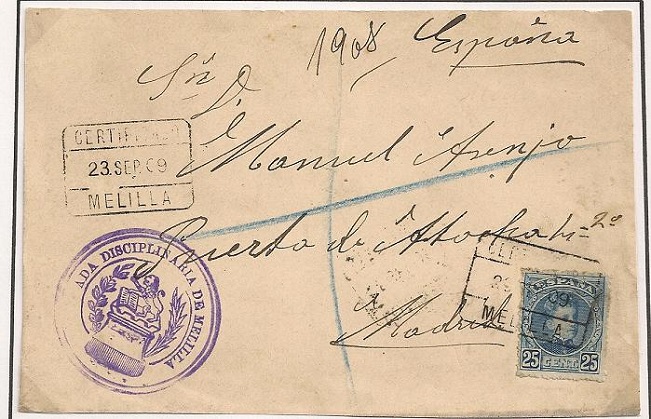 1908 España
Sr. D.
Manuel Asenjo
Puerta de Atocha
2º
Madrid
CERTIFICADO
23.SEP.09
MELILLA
ADA DISCIPLINARIA DE MELILLA
09
MELILLA
ESPAÑA
25 CENT 25